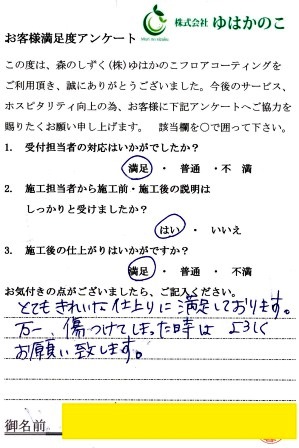 株式会社 ゆはかのこ
Mori no shizuku
お客様満足度アンケート
この度は、森のしずく(株)ゆはかのこフロアコーティングを
ご利用頂き、誠にありがとうございました。今後のサービス、
ホスピタリティ向上の為、お客様に下記アンケートへご協力を
賜りたくお願い申し上げます。 該当欄を○で囲って下さい。
1. 受付担当者の対応はいかがでしたか?
満足 ・ 普通 ・ 不満
2. 施工担当者から施工前・施工後の説明は
しっかりと受けましたか?
はい ・ いいえ
3. 施工後の仕上がりはいかがですか?
満足 ・ 普通 ・ 不満
お気付きの点がございましたら、ご記入ください。
とてもきれいな仕上りに満足しております。
万一、傷つけてしまった時は よろしく
お願い致します。
御名前。